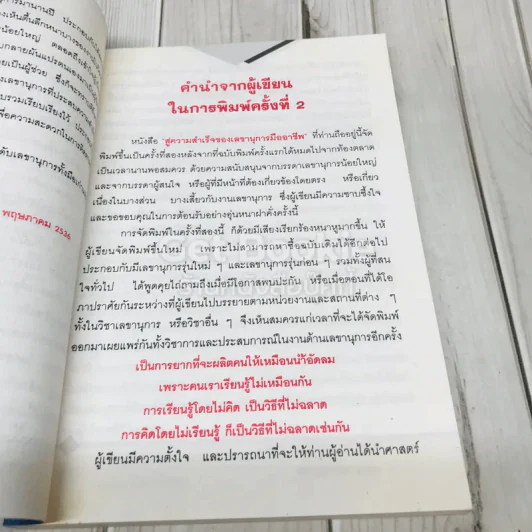 ปประกอบกับได้
น้อยใหญ่ ตลอดถึงเจ้า
พฤษภาคม 2536
คำนำจากผู้เขียน
ในการพิมพ์ครั้งที่ 2
หนังสือ "สู่ความสำเร็จของเลขานุการมืออาชีพ" ที่ท่านถืออยู่นี้จัด
พิมพ์ขึ้นเป็นครั้งที่สองหลังจากที่ฉบับพิมพ์ครั้งแรกได้หมดไปจากท้องตลาด
เป็นเวลานานพอสมควร ด้วยความสนับสนุนจากบรรดาเลขานุการน้อยใหญ่
และจากบรรดาผู้สนใจ หรือผู้ที่มีหน้าที่ต้องเกี่ยวข้องโดยตรง หรือเกี่ยว
เนื่องในบางส่วน บางเสี้ยวกับงานเลขานุการ ซึ่งผู้เขียนมีความซาบซึ้งใจ
และขอขอบคุณในการต้อนรับอย่างอุ่นหนาฝาคั่งครั้งนี้
การจัดพิมพ์ในครั้งที่สองนี้ ก็ด้วยมีเสียงเรียกร้องหนาหูมากขึ้น ให้
ผู้เขียนจัดพิมพ์ขึ้นใหม่ เพราะไม่สามารถหาซื้อฉบับเดิมได้อีกต่อไป
ประกอบกับมีเลขานุการรุ่นใหม่ ๆ และเลขานุการรุ่นก่อน ๆ รวมทั้งผู้ที่สน
ใจทั่วไป ได้พูดคุยไถ่ถามถึงเมื่อมีโอกาสพบปะกัน หรือเมื่อตอนที่ได้โอ
ภาปราศัยกันระหว่างที่ผู้เขียนไปบรรยายตามหน่วยงานและสถานที่ต่าง ๆ
ทั้งในวิชาเลขานุการ หรือวิชาอื่น ๆ จึงเห็นสมควรแก่เวลาที่จะได้จัดพิมพ์
ออกมาเผยแพร่กันทั้งวิชาการและประสบการณ์ในงานด้านเลขานุการอีกครั้ง
เป็นการยากที่จะผลิตคนให้เหมือนน้ำอัดลม
เพราะคนเราเรียนรู้ไม่เหมือนกัน
การเรียนรู้โดยไม่คิด เป็นวิธีที่ไม่ฉลาด
การคิดโดยไม่เรียนรู้ ก็เป็นวิธีที่ไม่ฉลาดเช่นกัน
ผู้เขียนมีความตั้งใจ และปรารถนาที่จะให้ท่านผู้อ่านได้นำศาสตร์